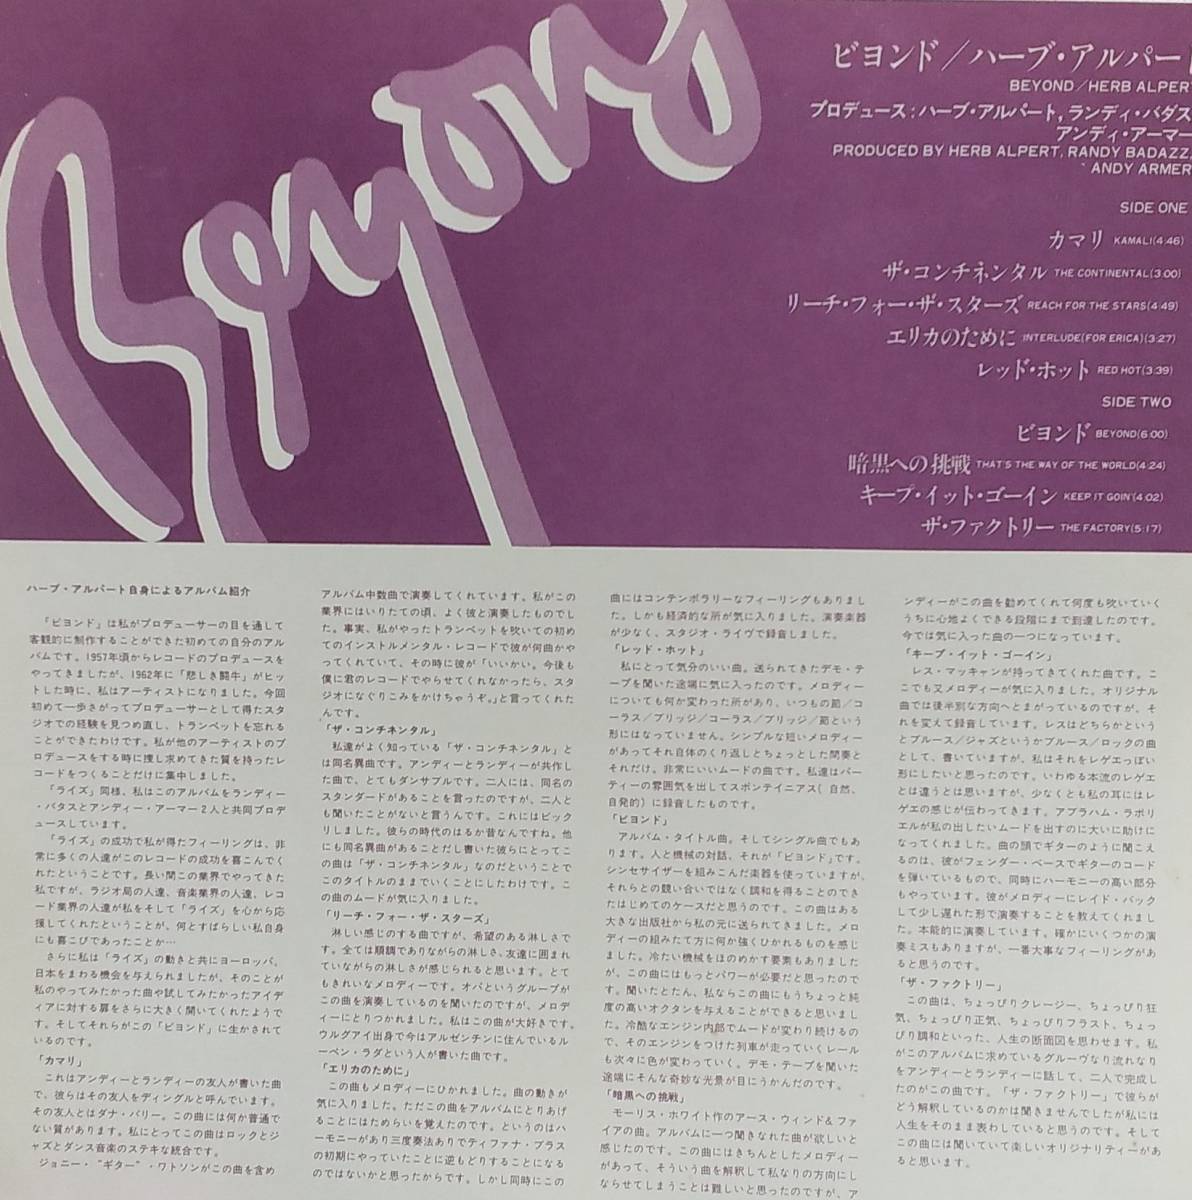 Beyond
ビヨンド／ハーブ・アルパート
BEYOND／HERB ALPERT
プロデュース：ハーブ・アルパート，ランディ・バダズ
アンディ・アーマー
PRODUCED BY HERB ALPERT, RANDY BADAZZ,
ANDY ARMER
SIDE ONE
カマリ KAMALI(4:46)
ザ・コンチネンタル THE CONTINENTAL(3:00)
リーチ・フォー・ザ・スターズ REACH FOR THE STARS(4:49)
エリカのために INTERLUDE(FOR ERICA)(3:27)
レッド・ホット RED HOT(3:39)
SIDE TWO
ビヨンド BEYOND(6:00)
暗黒への挑戦 THAT'S THE WAY OF THE WORLD(4:24)
キープ・イット・ゴーイン KEEP IT GOIN'(4:02)
ザ・ファクトリー THE FACTORY(5:17)
ハーブ・アルパート自身によるアルバム紹介
「ビヨンド」は私がプロデューサーの目を通して
客観的に制作することができた初めての自分のアル
バムです。1957年頃からレコードのプロデュースを
やってきましたが、1962年に「悲しき闘牛」がヒッ
トした時に、私はアーティストになりました。今回
初めて一歩さがってプロデューサーとして得たスタ
ジオでの経験を見つめ直し、トランペットを忘れる
ことができたわけです。私が他のアーティストのプ
ロデュースをする時に捜し求めてきた質を持ったレ
コードをつくることだけに集中しました。
「ライズ」同様、私はこのアルバムをランディー
・バタスとアンディー・アーマー2人と共同プロデ
ュースしています。
「ライズ」の成功で私が得たフィーリングは、非
常に多くの人達がこのレコードの成功を喜こんでく
れたということです。長い間この業界でやってきた
私ですが、ラジオ局の人達、音楽業界の人達、レコ
ード業界の人達が私をそして「ライズ」を心から応
援してくれたということが、何とすばらしい私自身
にも喜こびであったことか…
さらに私は「ライズ」の動きと共にヨーロッパ、
日本をまわる機会を与えられましたが、そのことが
私のやってみたかった曲や試してみたかったアイデ
ィアに対する扉をさらに大きく開いてくれたようで
す。そしてそれらがこの「ビヨンド」に生かされて
いるのです。
「カマリ」
これはアンディーとランディーの友人が書いた曲
で、彼らはその友人をディングルと呼んでいます。
その友人とはダナ・バリー。この曲には何か普通で
ない質があります。私にとってこの曲はロックとジ
ャズとダンス音楽のステキな統合です。
ジョニー・“ギター”・ワトソンがこの曲を含め
アルバム中数曲で演奏してくれています。私がこの
業界にはいりたての頃、よく彼と演奏したものでし
た。事実、私がやったトランペットを吹いての初め
てのインストルメンタル・レコードで彼が何曲かや
ってくれていて、その時に彼が「いいかい。今後も
僕に君のレコードでやらせてくれなかったら、スタ
ジオになぐりこみをかけちゃうぞ。」と言ってくれた
んです。
「ザ・コンチネンタル」
私達がよく知っている「ザ・コンチネンタル」と
は同名異曲です。アンディーとランディーが共作し
た曲で、とてもダンサブルです。二人には、同名の
スタンダードがあることを言ったのですが、二人と
も聞いたことがないと言うんです。これにはビック
リしました。彼らの時代のはるか昔なんですね。他
にも同名異曲があることだし書いた彼らにとってこ
の曲は「ザ・コンチネンタル」なのだということで
このタイトルのままでいくことにしたわけです。こ
の曲のムードが気に入りました。
「リーチ・フォー・ザ・スターズ」
淋しい感じのする曲ですが、希望のある淋しさで
す。全ては順調でありながらの淋しさ、友達に囲まれ
ていながらの淋しさが感じられると思います。とて
もきれいなメロディーです。オパというグループが
この曲を演奏しているのを聞いたのですが、メロデ
ィーにとりつかれました。私はこの曲が大好きです。
ウルグアイ出身で今はアルゼンチンに住んでいるルー
ベン・ラダという人が書いた曲です。
「エリカのために」
この曲もメロディーにひかれました。曲の動きが
気に入りました。ただこの曲をアルバムにとりあげ
ることにはためらいを覚えたのです。というのはハ
ーモニーがあり三度奏法ありでティファナ・ブラス
の初期にやっていたことに逆もどりすることになる
のではないかと思ったからです。しかし同時にこの
曲にはコンテンポラリーなフィーリングもありまし
た。しかも経済的な所が気に入りました。演奏楽器
が少なく、スタジオ・ライヴで録音しました。
「レッド・ホット」
私にとって気分のいい曲。送られてきたデモ・テ
ープを聞いた途端に気に入ったのです。メロディー
についても何か変わった所があり、いつもの節／コ
ーラス／ブリッジ／コーラス／ブリッジ／節という
形にはなっていません。シンプルな短いメロディー
があってそれ自体のくり返しとちょっとした間奏と
それだけ。非常にいいムードの曲です。私達はパー
ティーの雰囲気を出してスポンテイニアス（自然、
自発的）に録音したものです。
「ビヨンド」
アルバム・タイトル曲。そしてシングル曲でもあ
ります。人と機械の対話、それが「ビヨンド」です。
シンセサイザーを組みこんだ楽器を使っていますが、
それらとの競い合いではなく調和を得ることのでき
たはじめてのケースだと思うのです。この曲はある
大きな出版社から私の元に送られてきました。メロ
ディーの組みたて方に何か強くひかれるものを感じ
ました。冷たい機械をほのめかす要素もありました
が、この曲にはもっとパワーが必要だと思ったので
す。聞いたとたん、私ならこの曲にもうちょっと純
度の高いオクタンを与えることができると思いまし
た。冷酷なエンジン内部でムードが変わり続けるの
で、そのエンジンをつけた列車が走っていくレール
も次々に色が変わっていく。デモ・テープを聞いた
途端にそんな奇妙な光景が目にうかんだのです。
「暗黒への挑戦」
モーリス・ホワイト作のアース・ウィンド＆ファ
イアの曲。アルバムに一つ聞きなれた曲が欲しいと
感じたのです。この曲にはきちんとしたメロディー
があって、そういう曲を解釈して私なりの方向にし
ならせてしまうことは難しいと思ったのですが、ア
ンディーがこの曲を勧めてくれて何度も吹いていく
うちに心地よくできる段階にまで到達したのです。
今では気に入った曲の一つになっています。
「キープ・イット・ゴーイン」
レス・マッキャンが持ってきてくれた曲です。こ
こでも又メロディーが気に入りました。オリジナル
曲では後半別な方向へとまがっているのですが、そ
れを変えて録音しています。レスはどちらかという
とブルース／ジャズというかブルース／ロックの曲
として、書いていますが、私はそれをレゲエっぽい
形にしたいと思ったのです。いわゆる本流のレゲエ
とは違うとは思いますが、少なくとも私の耳にはレ
ゲエの感じが伝わってきます。アブラハム・ラボリ
エルが私の出したいムードを出すのに大いに助けに
なってくれました。曲の頭でギターのように聞こえ
るのは、彼がフェンダー・ベースでギターのコード
を弾いているもので、同時にハーモニーの高い部分
もやっています。彼がメロディーにレイド・バック
して少し遅れた形で演奏することを教えてくれまし
た。本能的に演奏しています。確かにいくつかの演
奏ミスもありますが、一番大事なフィーリングがあ
ると思うのです。
「ザ・ファクトリー」
この曲は、ちょっぴりクレージー、ちょっぴり狂
気、ちょっぴり正気、ちょっぴりフラスト、ちょっ
ぴり調和といった、人生の断面図を思わせます。私
がこのアルバムに求めているグルーヴなり流れなり
をアンディーとランディーに話して、二人で完成し
たのがこの曲です。「ザ・ファクトリー」で彼らが
どう解釈しているのかは聞きませんでしたが私には
人生をそのまま表わしていると思うのです。そして
この曲には聞いていて楽しいオリジナリティーがあ
ると思います。